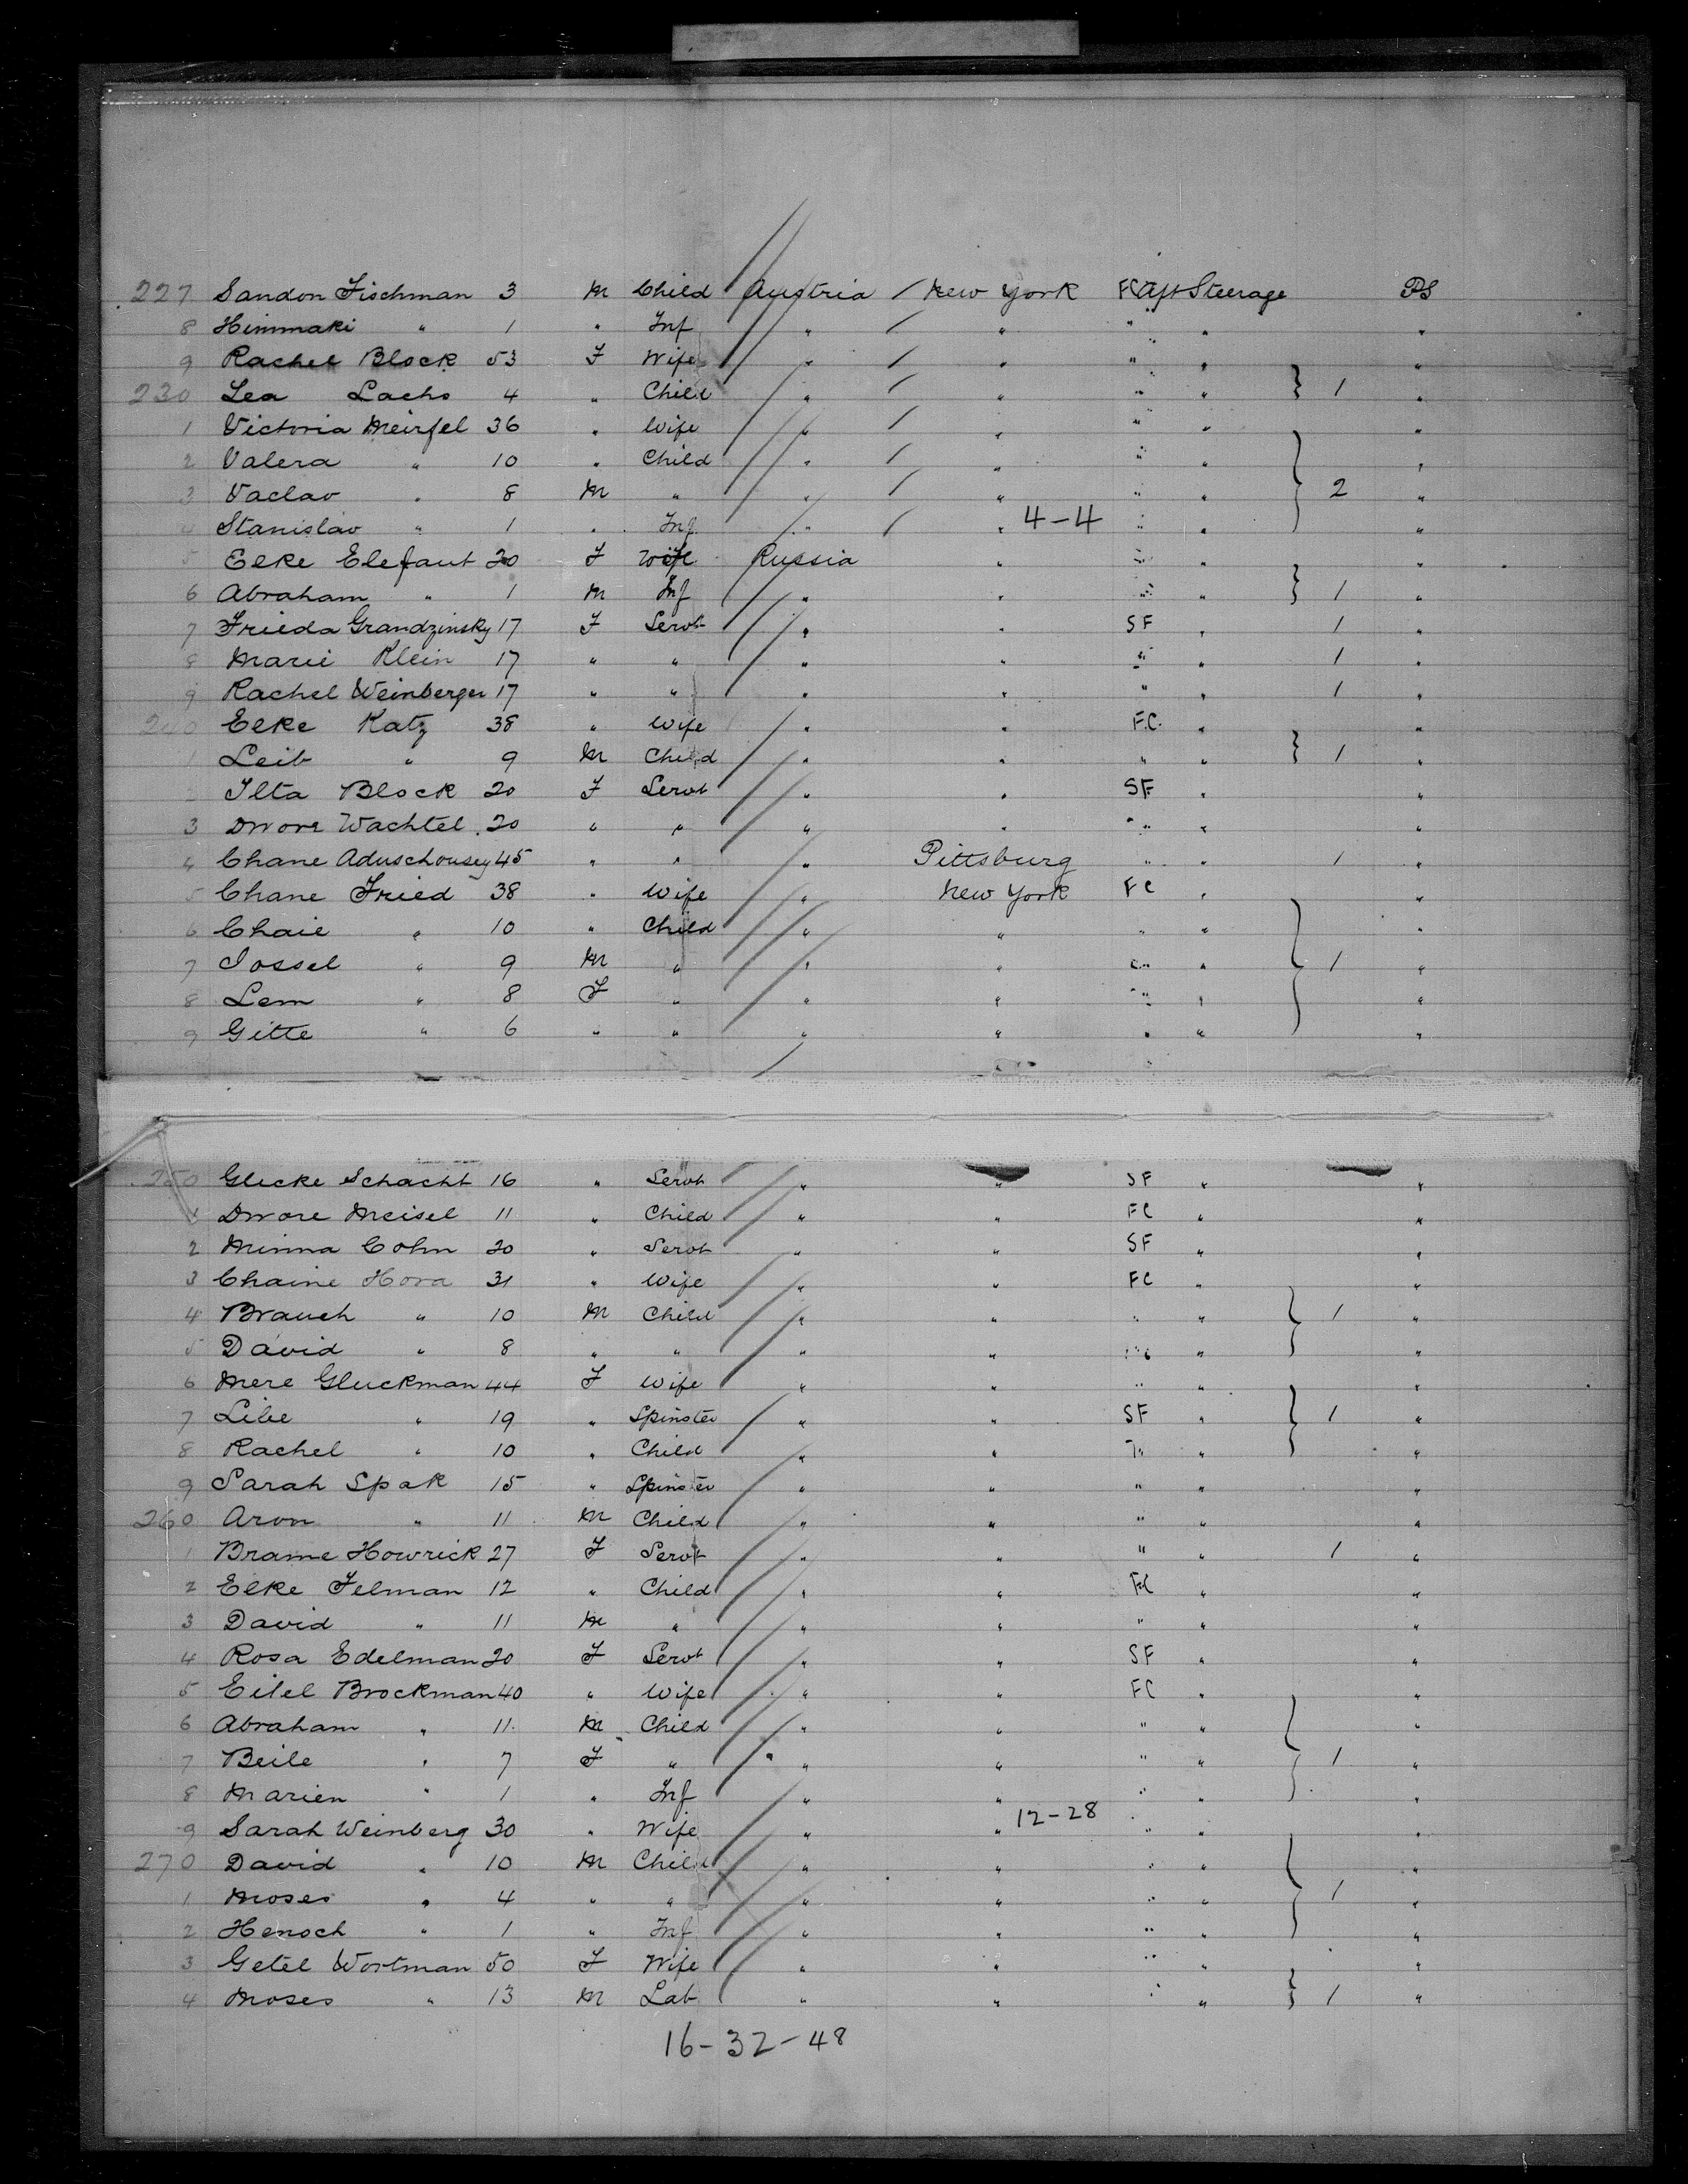 227 Sandon Fischman 3 M Child Austria / New York FC Aft Steerage PS
8 Himmaki " 1 " Inf " / " " " "
9 Rachel Block 53 F Wife " / " " " "
230 Lea Lachs 4 " Child " / " " " } 1 "
1 Victoria Meirfel 36 " Wife " / " " " "
2 Valera " 10 " Child " / " " " "
3 Vaclav " 8 M " " / " " " } 2 "
4 Stanislav " 1 " Inf " / " 4-4 " " "
5 Elke Elefant 20 F Wife Russia " " " "
6 Abraham " 1 M Inf " " " " } 1 "
7 Frieda Grandzinsky 17 F Servt " " SF " 1 "
8 Marie Klein 17 " " " " " " 1 "
9 Rachel Weinberger 17 " " " " " " 1 "
240 Elke Katz 38 " Wife " " F.C. " "
1 Leib " 9 M Child " " " " } 1 "
2 Ilta Block 20 F Servt " " SF " "
3 Dwore Wachtel 20 " " " " " " "
4 Chane Aduschousey 45 " " " Pittsburg " " 1 "
5 Chane Fried 38 " Wife " New York FC " "
6 Chaie " 10 " Child " " " " "
7 Jossel " 9 M " " " " " } 1 "
8 Lem " 8 F " " " " " "
9 Gitte " 6 " " " " " " "
250 Glecke Schacht 16 " Servt " " SF " "
1 Dwore Meisel 11 " Child " " FC " "
2 Minna Cohn 20 " Servt " " SF " "
3 Chaine Hora 31 " Wife " " FC " "
4 Brauch " 10 M Child " " " " } 1 "
5 David " 8 " " " " " " "
6 Mere Gluckman 44 F Wife " " " " "
7 Libe " 19 " Spinster " " SF " } 1 "
8 Rachel " 10 " Child " " " " "
9 Sarah Spak 15 " Spinster " " " " "
260 Aron " 11 M Child " " " " "
1 Brame Howrick 27 F Servt " " " " 1 "
2 Elke Felman 12 " Child " " FC " "
3 David " 11 M " " " " " "
4 Rosa Edelman 20 F Servt " " SF " "
5 Eitel Brockman 40 " Wife " " FC " "
6 Abraham " 11 M Child " " " " "
7 Beile " 7 F " " " " " } 1 "
8 Marien " 1 " Inf " " " " "
9 Sarah Weinberg 30 " Wife " " 12-28 " " "
270 David " 10 M Child " " " " "
1 Moses " 4 " " " " " " } 1 "
2 Henoch " 1 " Inf " " " " "
3 Getel Wortman 50 F Wife " " " " "
4 Moses " 13 M Lab " " " " } 1 "
16-32-48